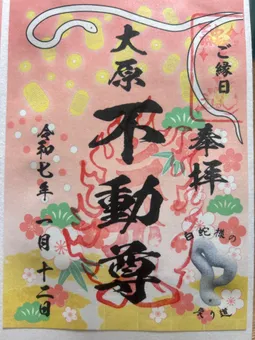 ご縁日
奉拝
大原
不動尊
令和七年 一月 十二日
白蛇様の
乗り進